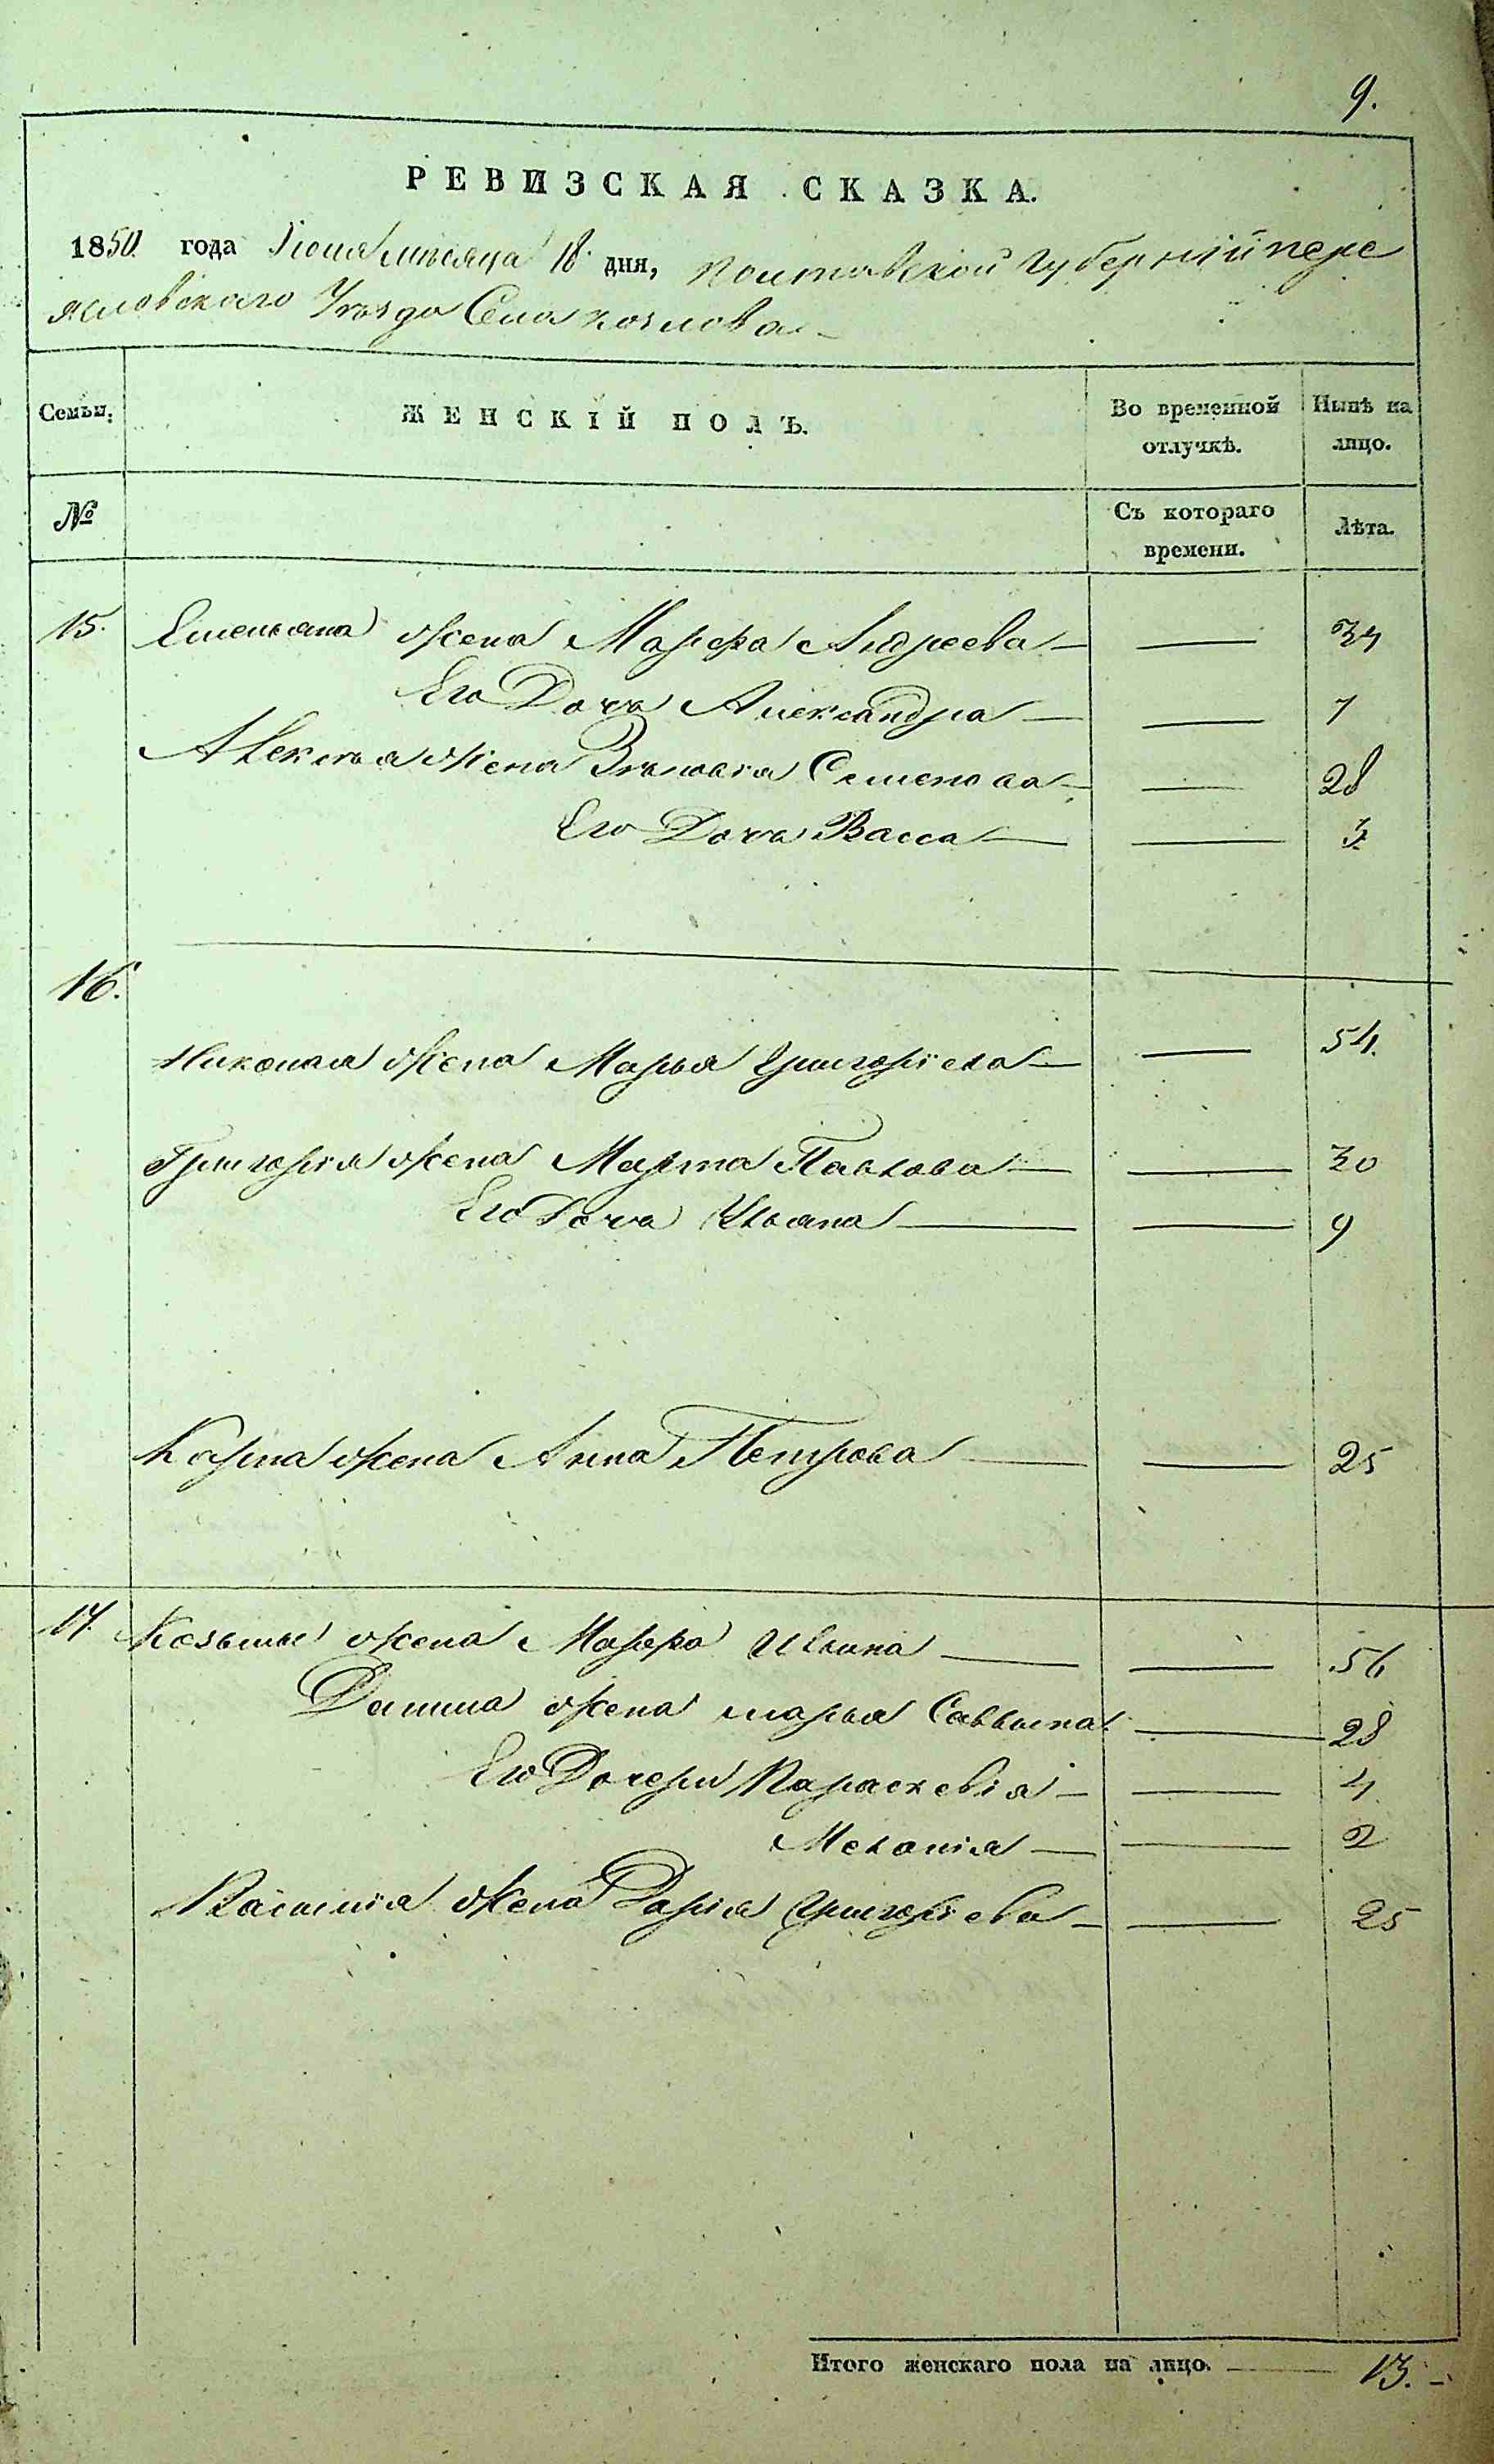 9.
РЕВИЗСКАЯ СКАЗКА.
1850 года Іюня мѣсяца 18 дня, Полтавской Губерніи Пере
яславского Уѣзда Села Козлова
Семьи. ЖЕНСКІЙ ПОЛЪ. Во временной отлучкѣ. Нынѣ на лицо.
№ Съ котораго времени. Лѣта.
15. Емельяна жена Марфа Андреева — — 34
Его Дочь Александра — — 7
Алексѣя жена Семенова — — 28
Его Дочь Васса — — 3
16.
Николая жена Марья Григоріева — — 54.
Григорія жена Марта Павлова — — 30
Его Дочь Ульяна — — 9
Карпа жена Анна Петрова — — 25
17. Козьмы жена Марфа Ильина — — 56
жена марья Саввина — 28
Его Дочери Параскевія — — 4
Меланія — — 2
Василія жена Дарія Григоріева — — 25
Итого женскаго пола на лицо. — 13. -